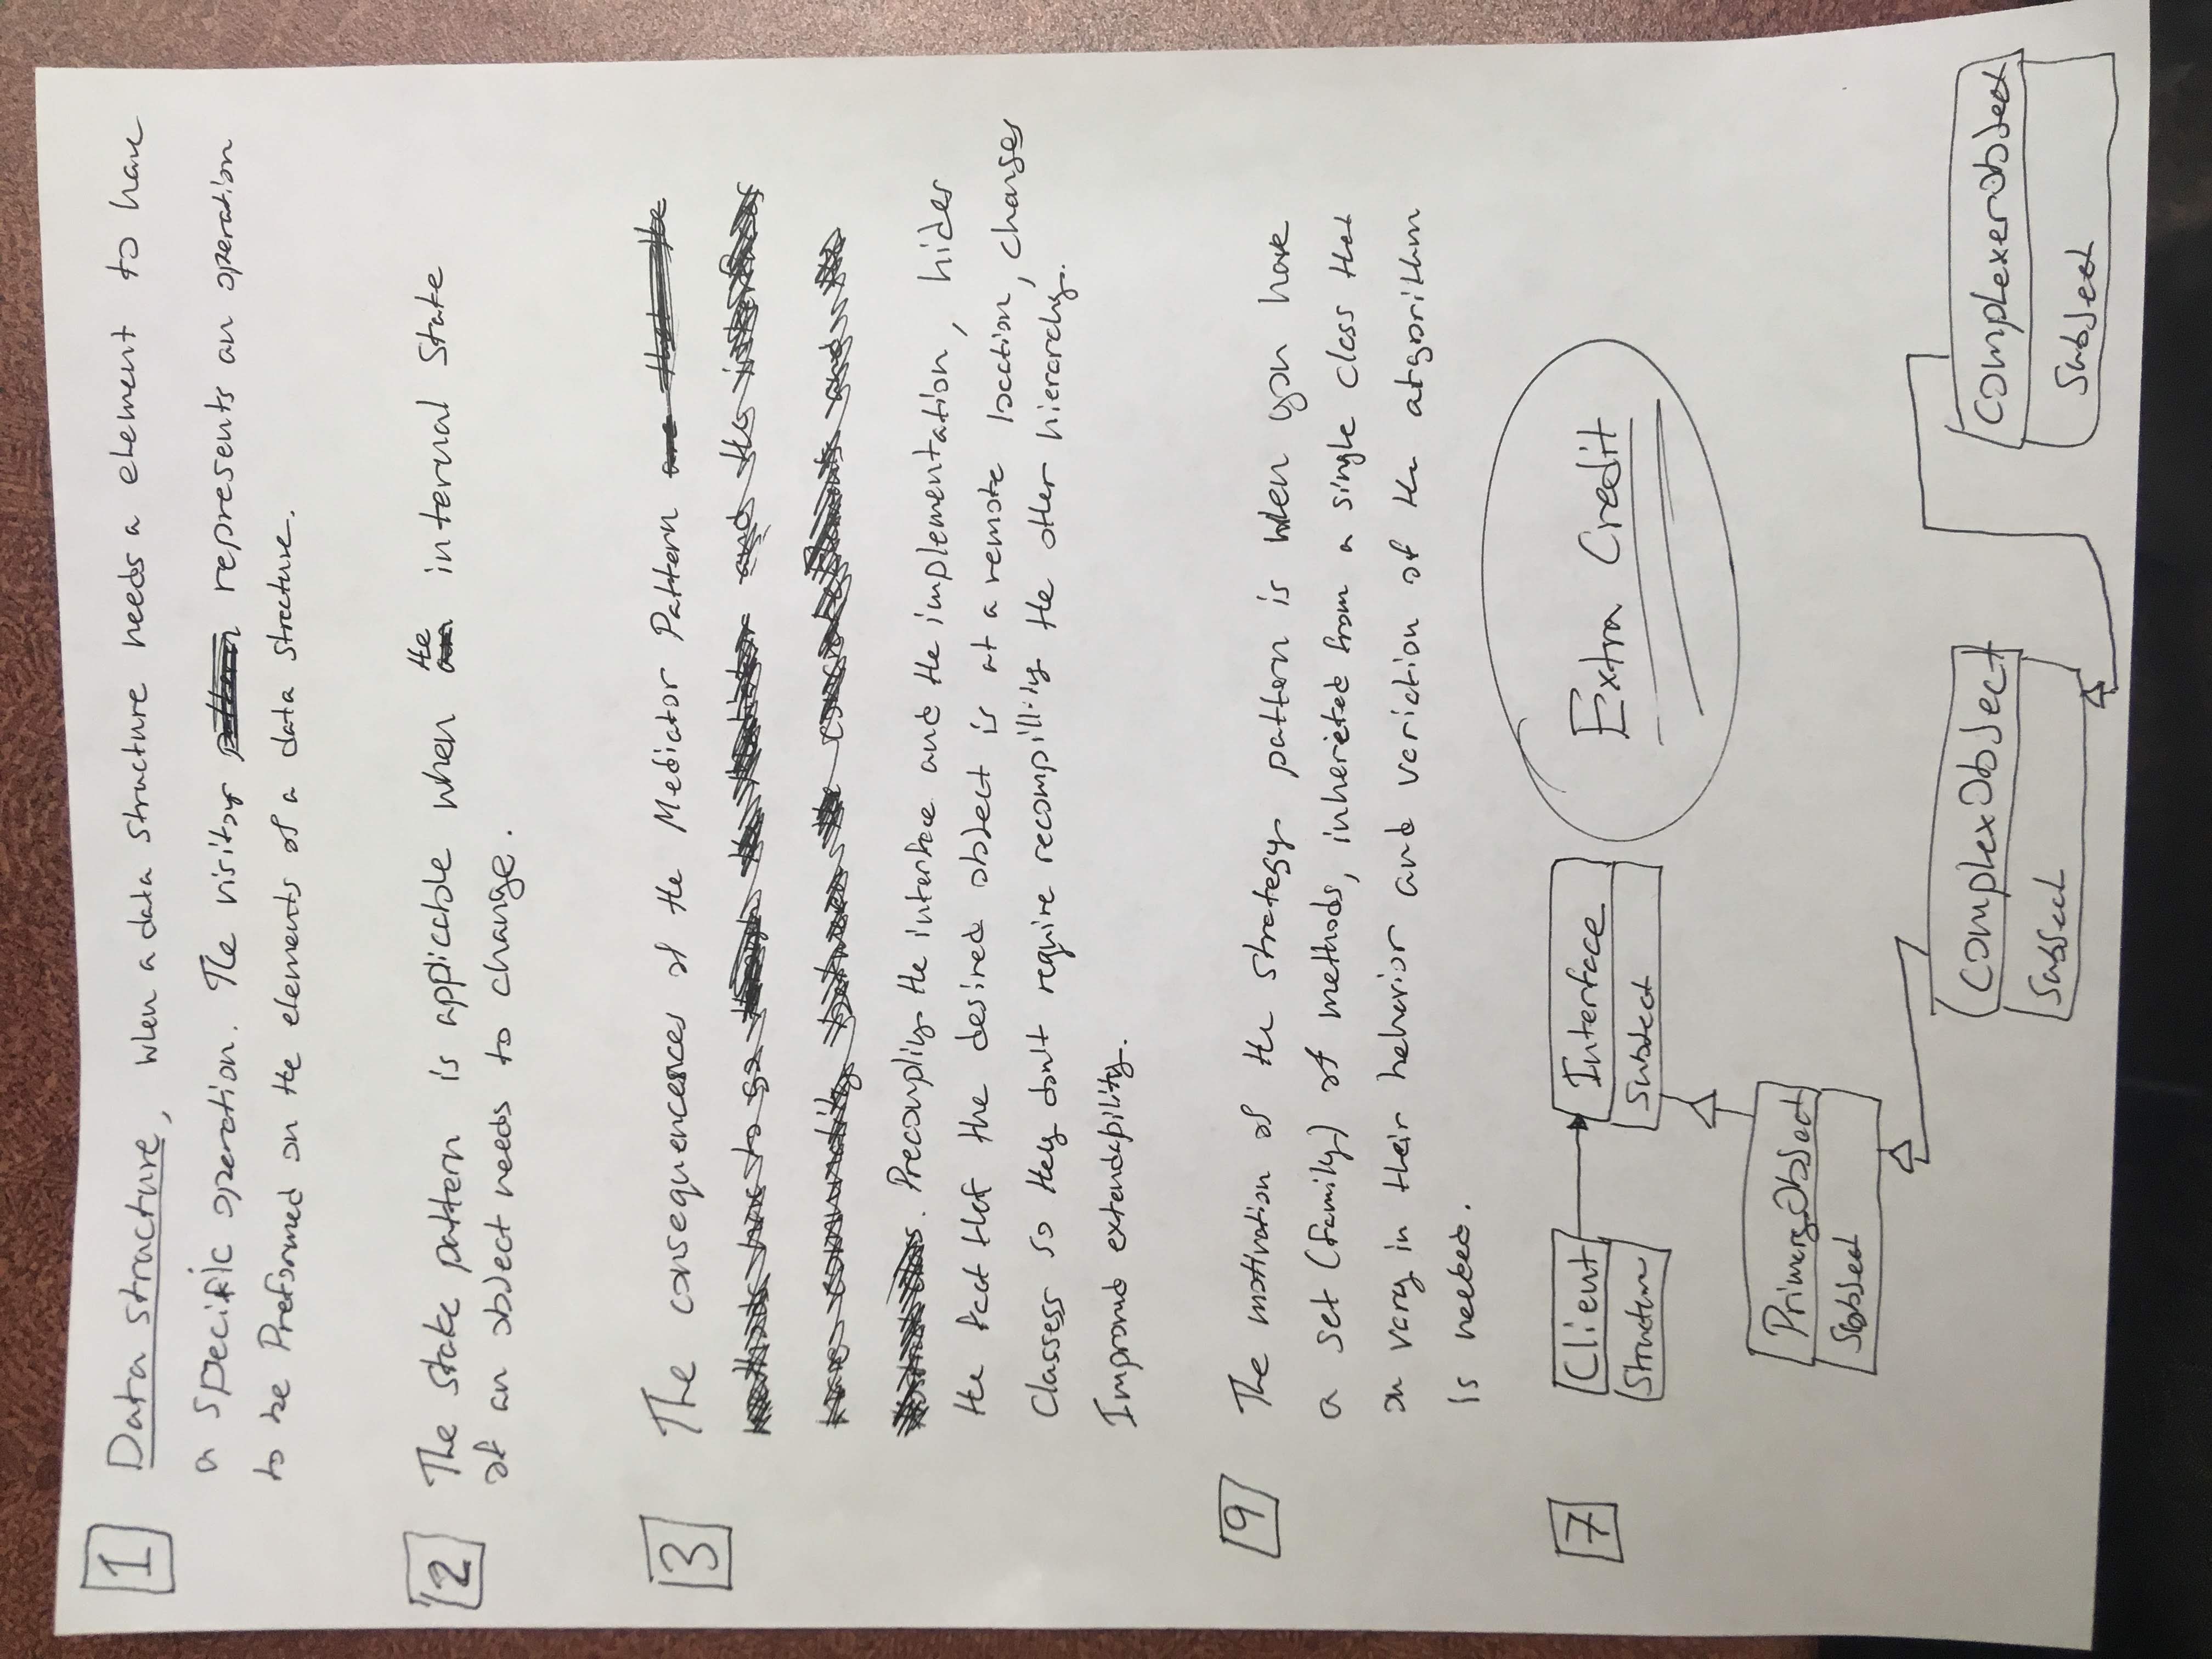 1 Data structure, when a data structure needs a element to have
a specific operation. The visitor represents an operation
to be Preformed on the elements of a data structure.
2 The state pattern is applicable when the internal state
of an object needs to change.
3 The consequencences of the Mediator Pattern
. Precompliy the interface and the implementation, hides
the fact that the desired object is at a remote location, changes
Classess so they don't require recompilliy the other hierarchy.
Improved extendability.
9 The motivation of the strategy pattern is when you have
a set (family) of methods, inherited from a single class that
on vary in their behavior and variction of the algorithm
is needed.
7
Client
Structure
Interface
Subject
Extra Credit
PrimaryObject
Subject
ComplexObject
Subject
ComplexerObject
Subject